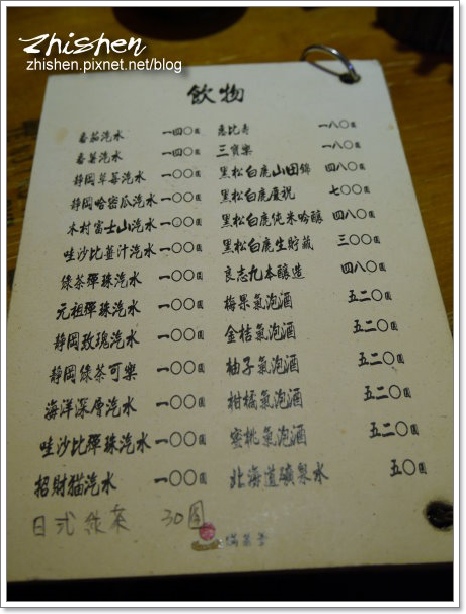 Zhishen
zhishen.pixnet.net/blog
飲物
番茄汽水 一四〇圓
番薯汽水 一四〇圓
靜岡草莓汽水 一〇〇圓
靜岡哈密瓜汽水 一〇〇圓
木村富士山汽水 一〇〇圓
哇沙比薑汁汽水 一〇〇圓
綠茶彈珠汽水 一〇〇圓
元祖彈珠汽水 一〇〇圓
靜岡玫瑰汽水 一〇〇圓
靜岡綠茶可樂 一〇〇圓
海洋深層汽水 一〇〇圓
哇沙比彈珠汽水 一〇〇圓
招財貓汽水 一〇〇圓
日式綠茶 30圓
惠比壽 一八〇圓
三寶樂 一八〇圓
黑松白鹿山田錦 四八〇圓
黑松白鹿慶祝 七〇〇圓
黑松白鹿純米吟釀 四八〇圓
黑松白鹿生貯藏 三〇〇圓
良志久本釀造 四八〇圓
梅果氣泡酒 五二〇圓
金桔氣泡酒 五二〇圓
柚子氣泡酒 五二〇圓
柑橘氣泡酒 五二〇圓
蜜桃氣泡酒 五二〇圓
北海道礦泉水 五〇圓